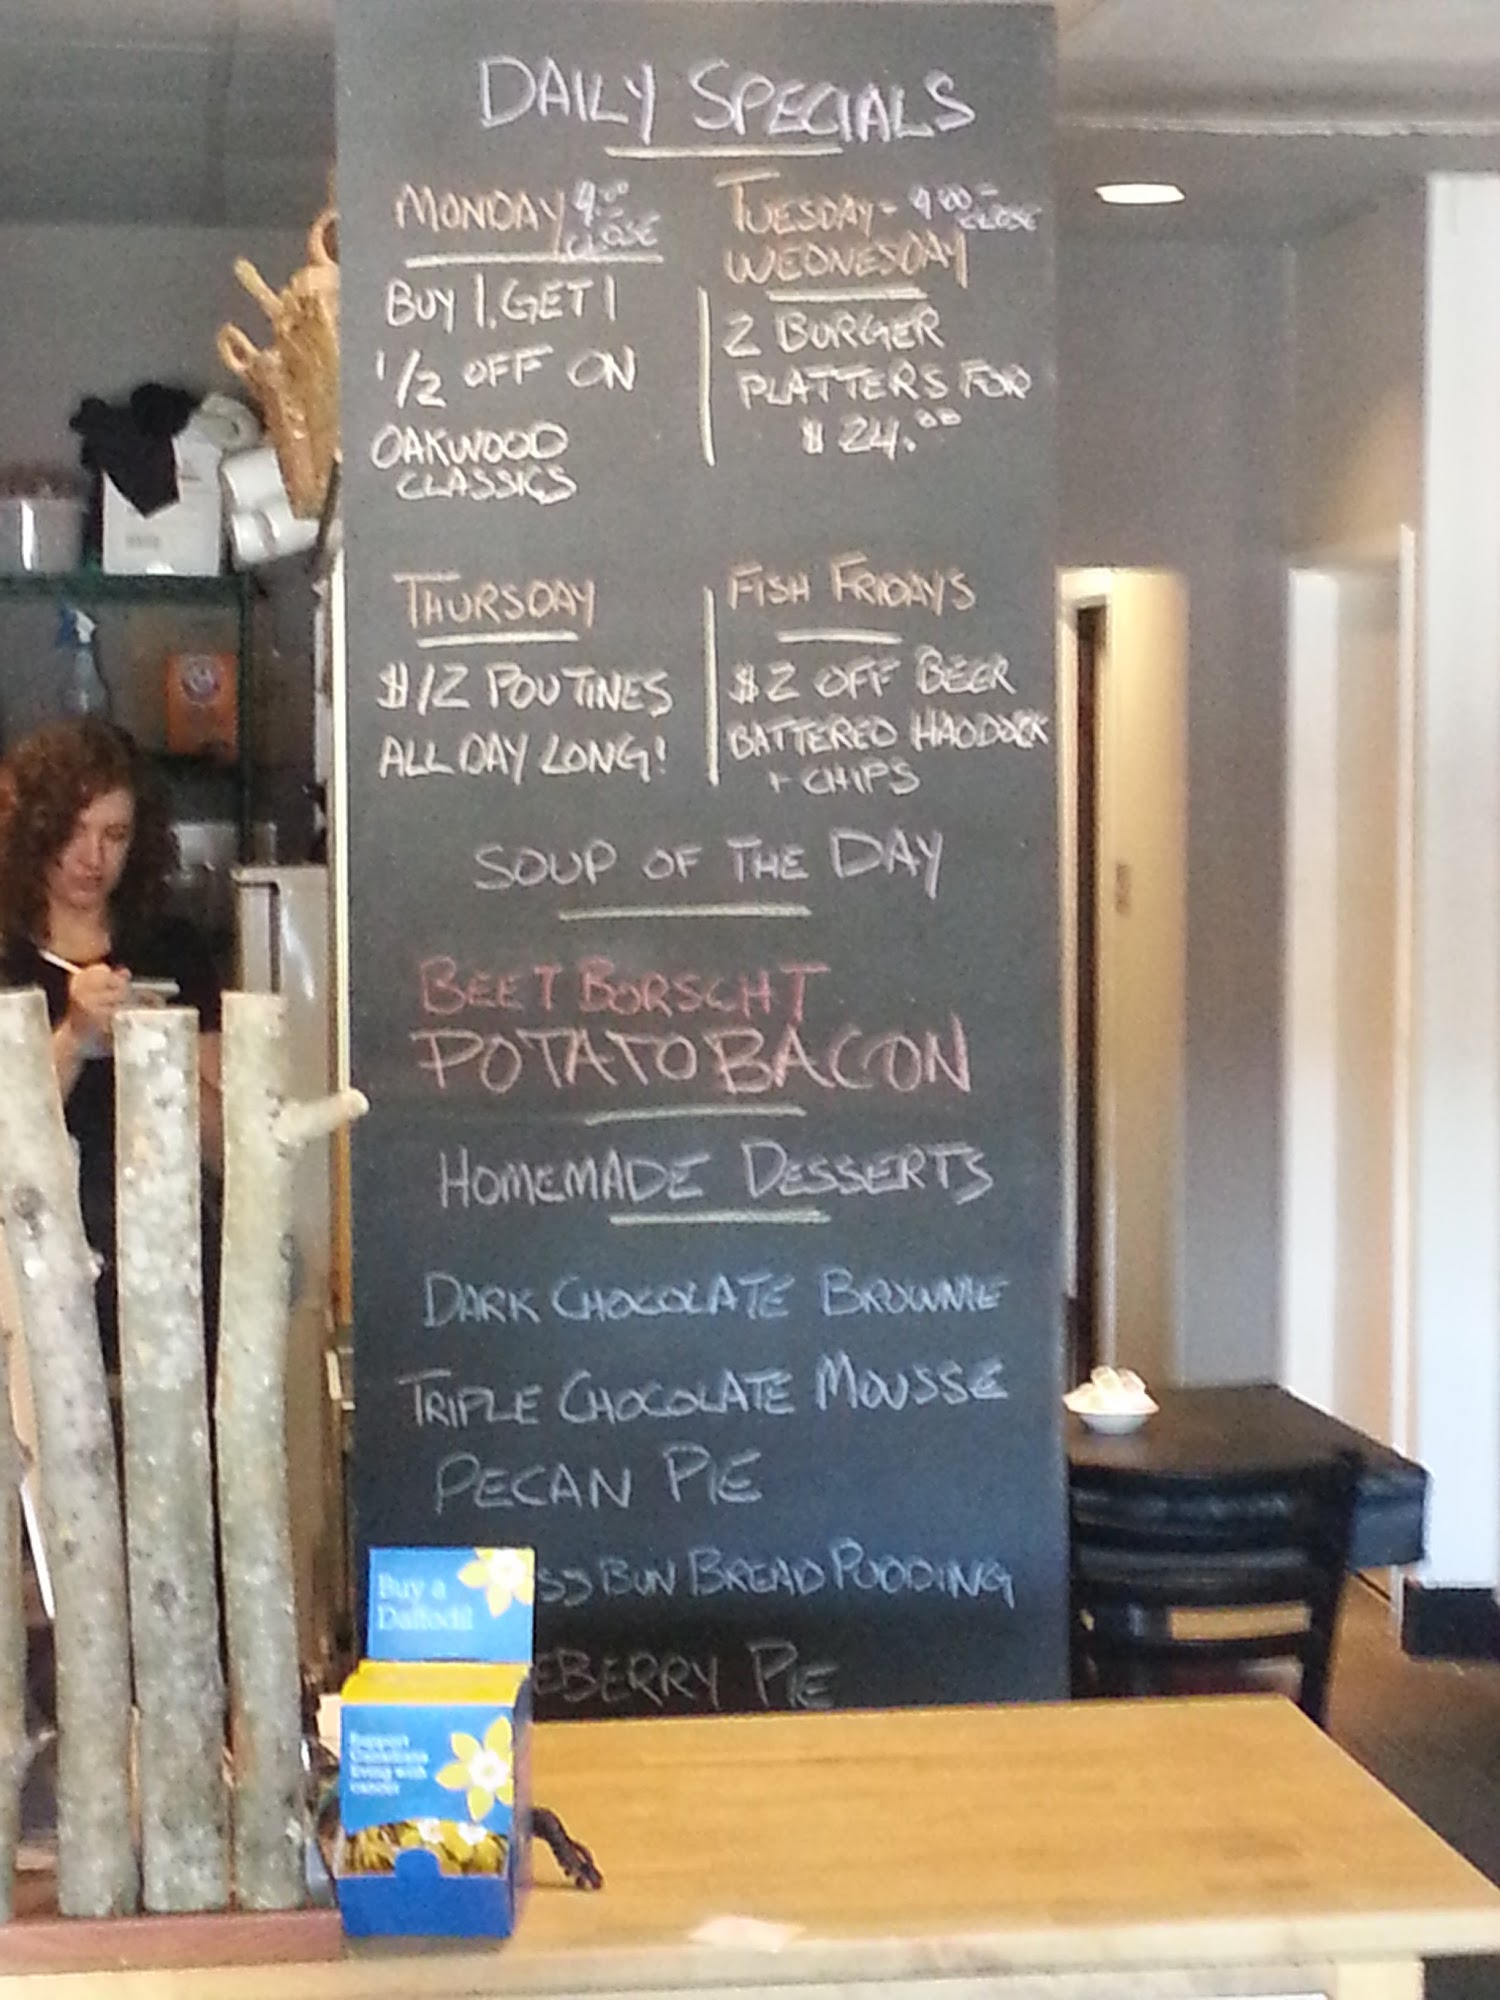 DAILY SPECIALS
MONDAY 4:00 - CLOSE
BUY 1, GET 1
1/2 OFF ON
OAKWOOD
CLASSICS
TUESDAY - 4:00 - CLOSE
WEDNESDAY
2 BURGER
PLATTERS FOR
$ 24.00
THURSDAY
$1/2 POUTINES
ALL DAY LONG!
FISH FRIDAYS
$2 OFF BEER
BATTERED HADDOCK
+ CHIPS
SOUP OF THE DAY
BEET BORSCHT
POTATO BACON
HOMEMADE DESSERTS
DARK CHOCOLATE BROWNIE
TRIPLE CHOCOLATE MOUSSE
PECAN PIE
BUN BREAD PUDDING
EBERRY PIE
Buy a
Daffodil
Support
Canadians
living with
cancer